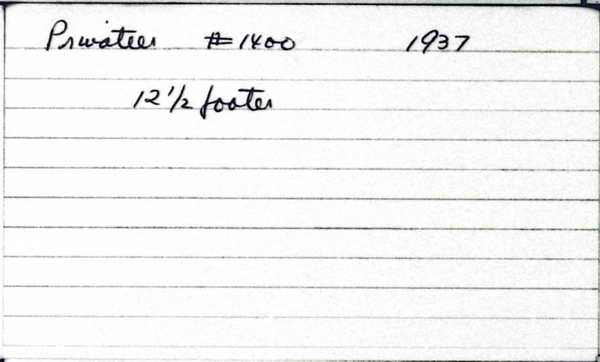 Privateer #1400 1937
12 1/2 footer